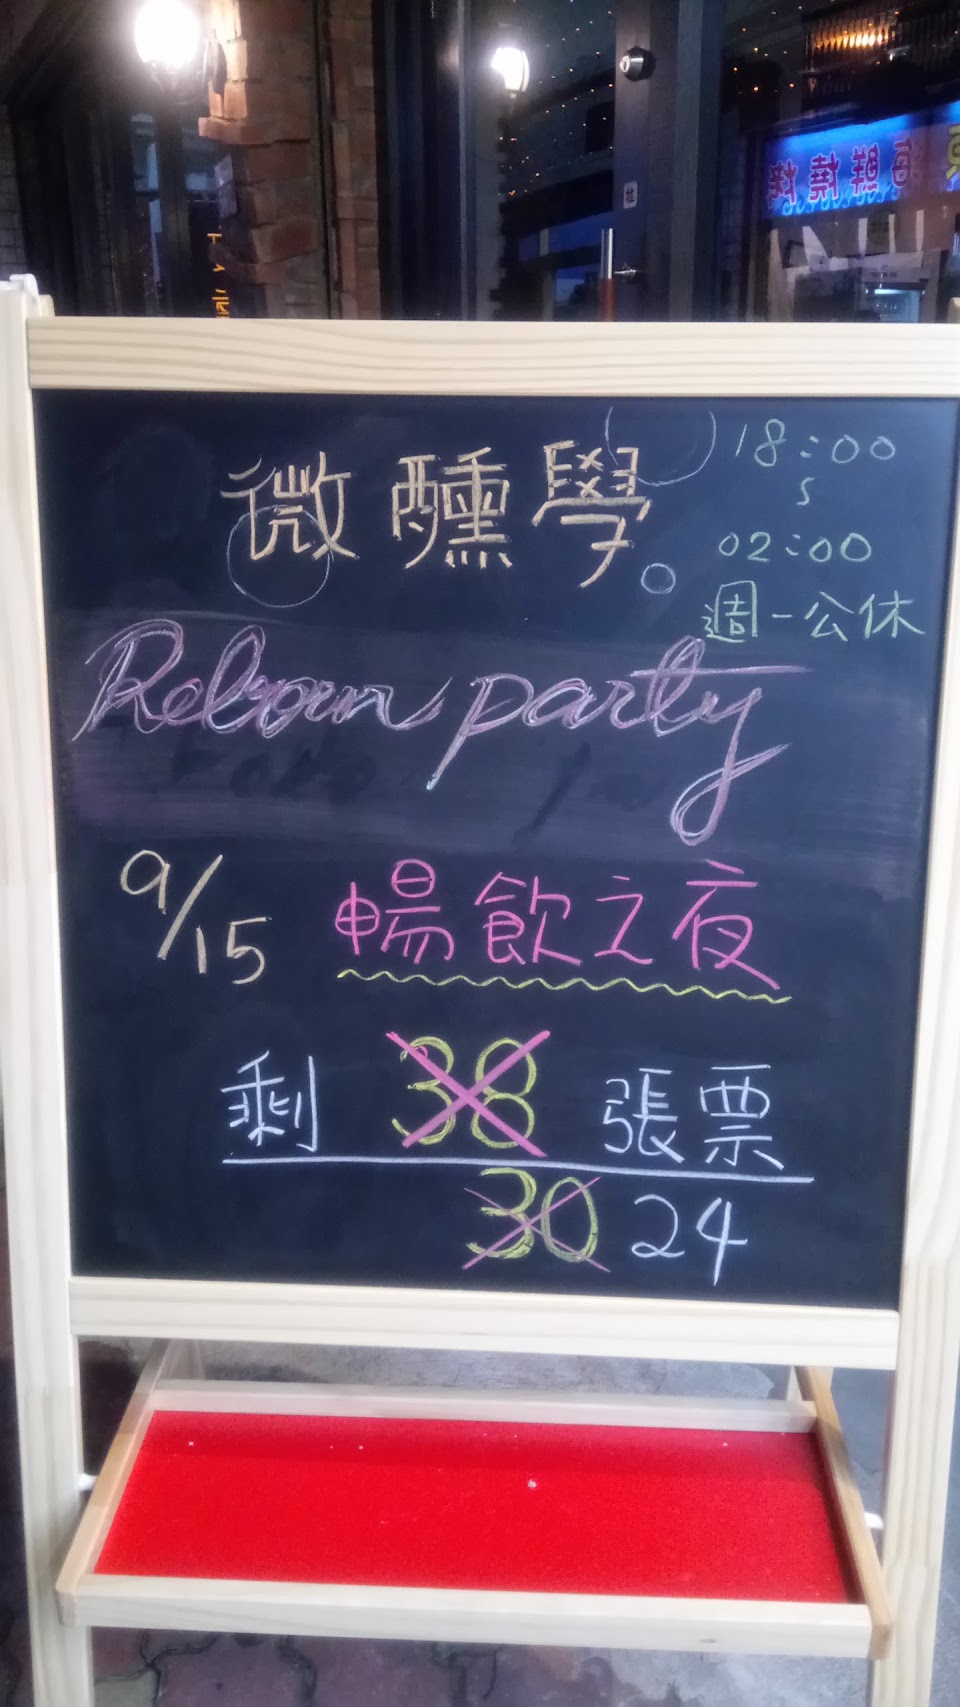 微醺學。
18:00
~
02:00
週一公休
Reborn party
9/15 暢飲之夜
剩 38 張票
30 24